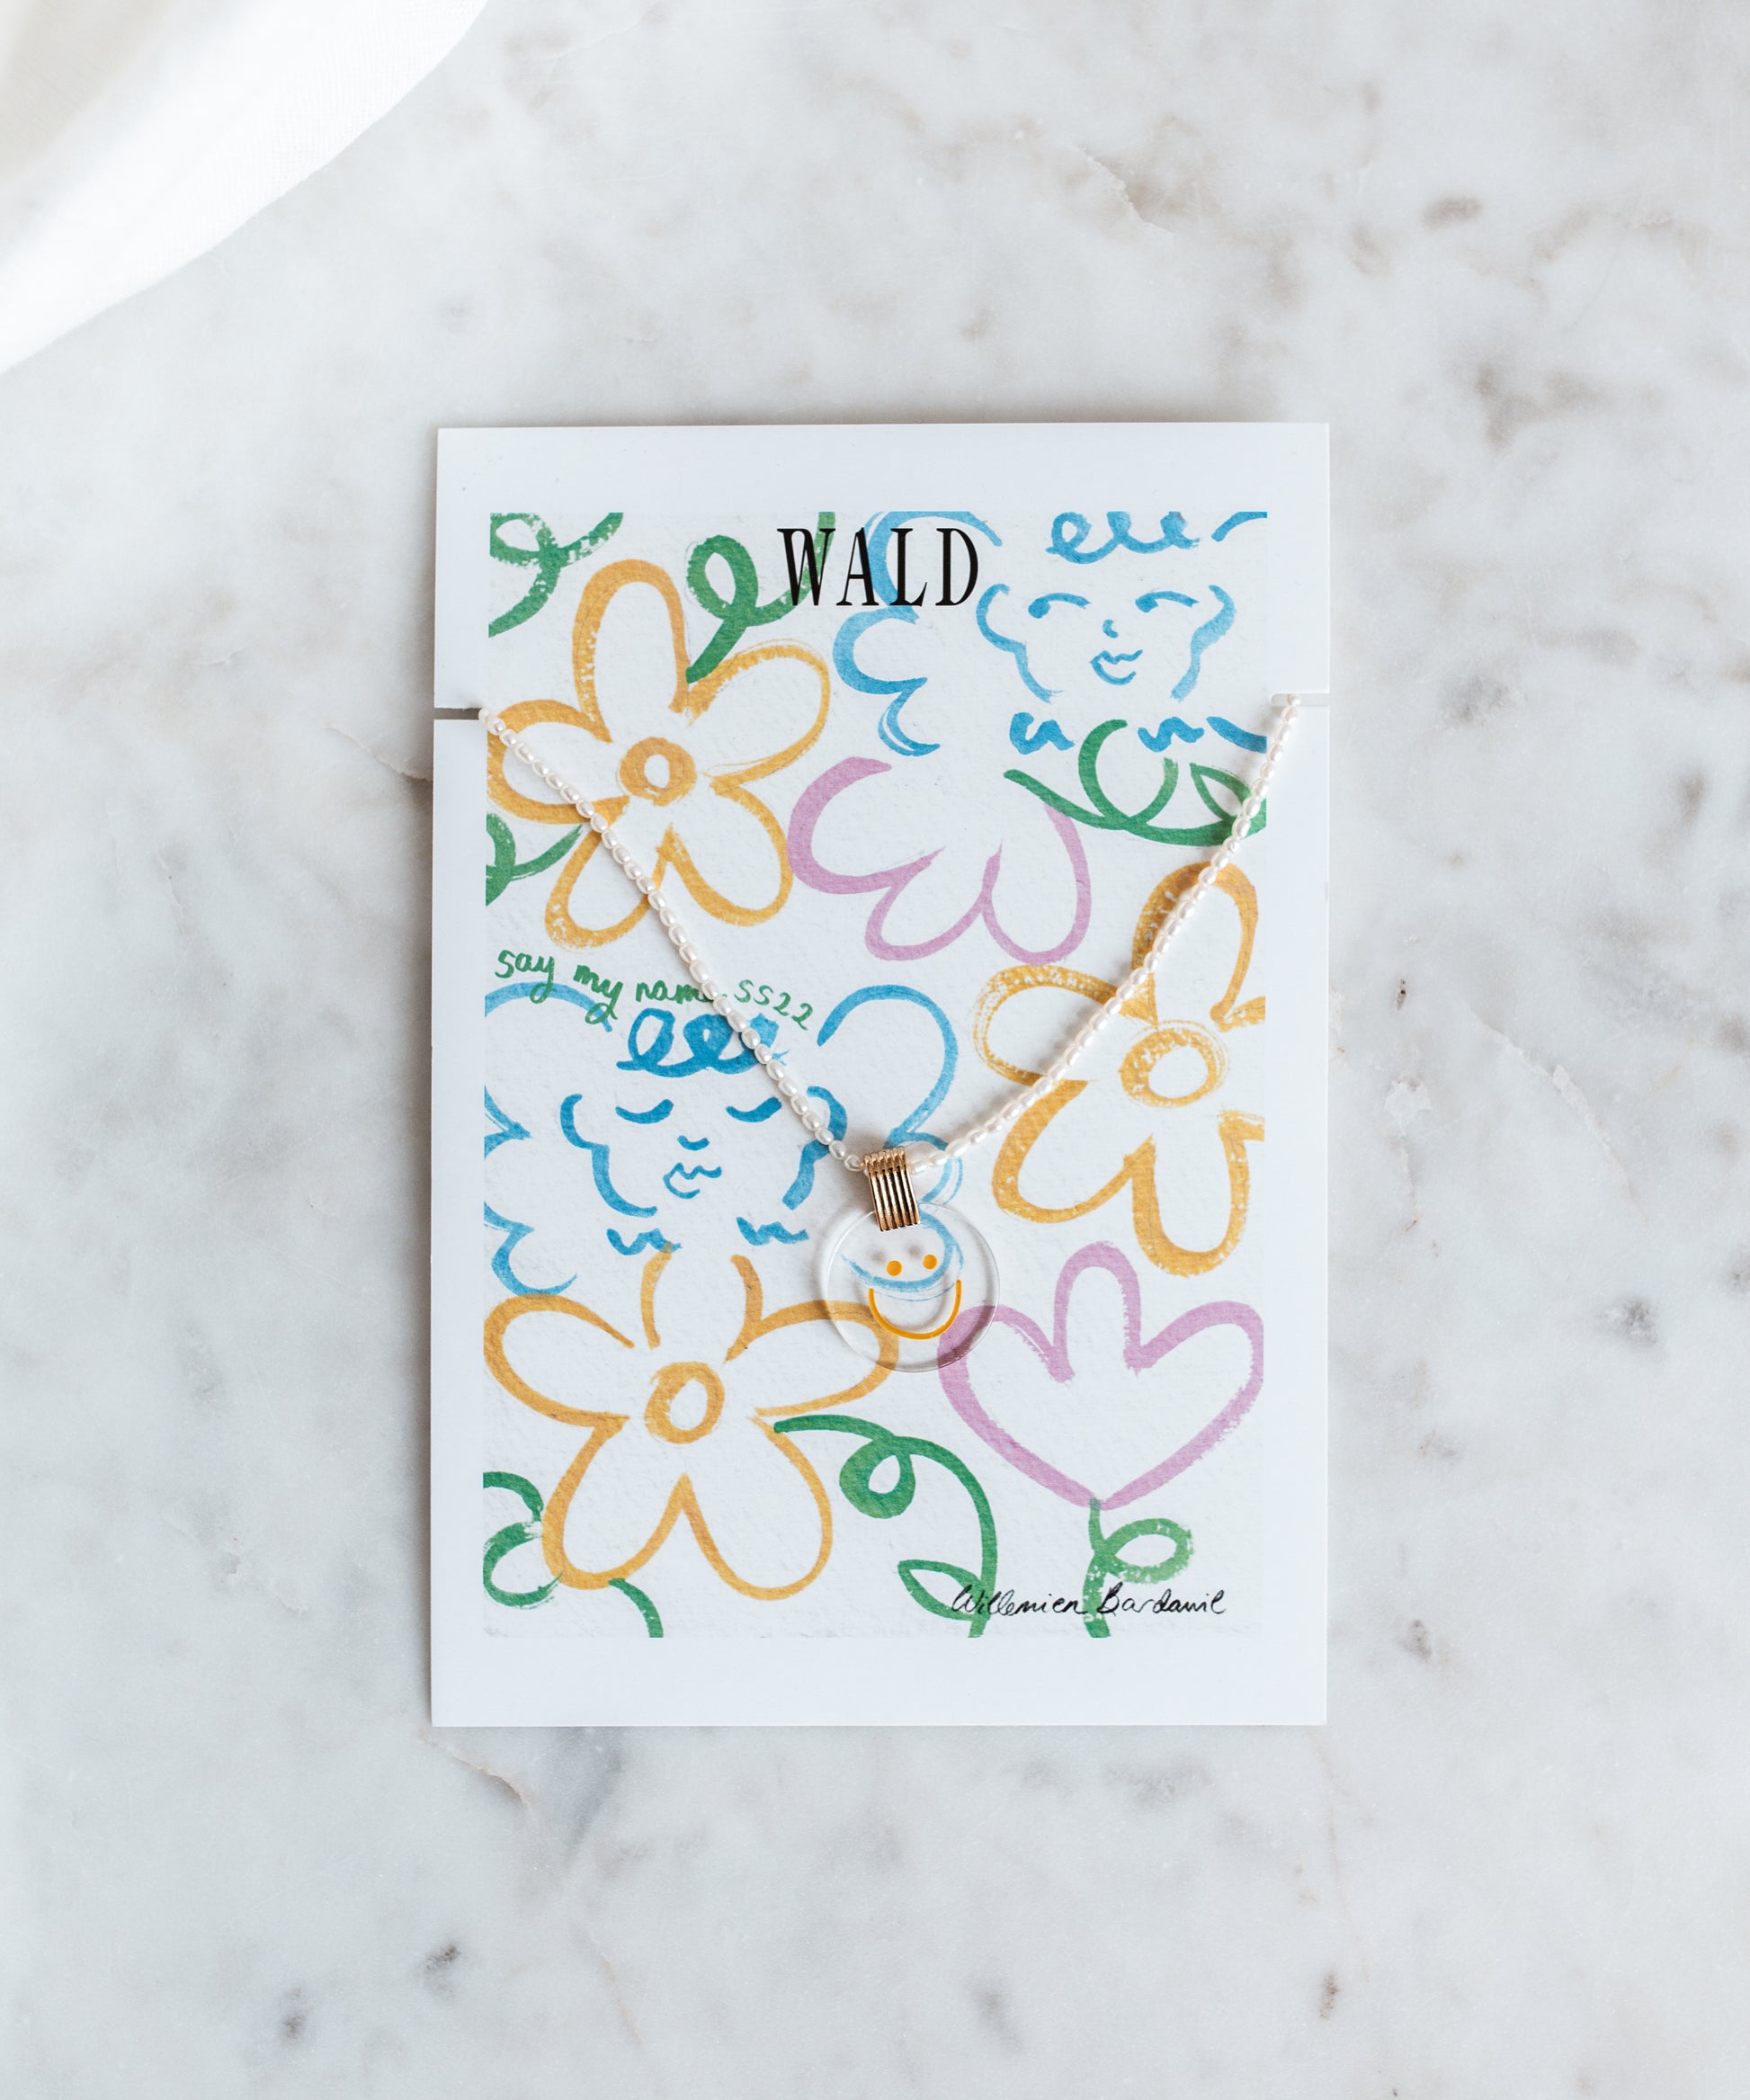 WALD
say my name SS22
Willemien Bardawil